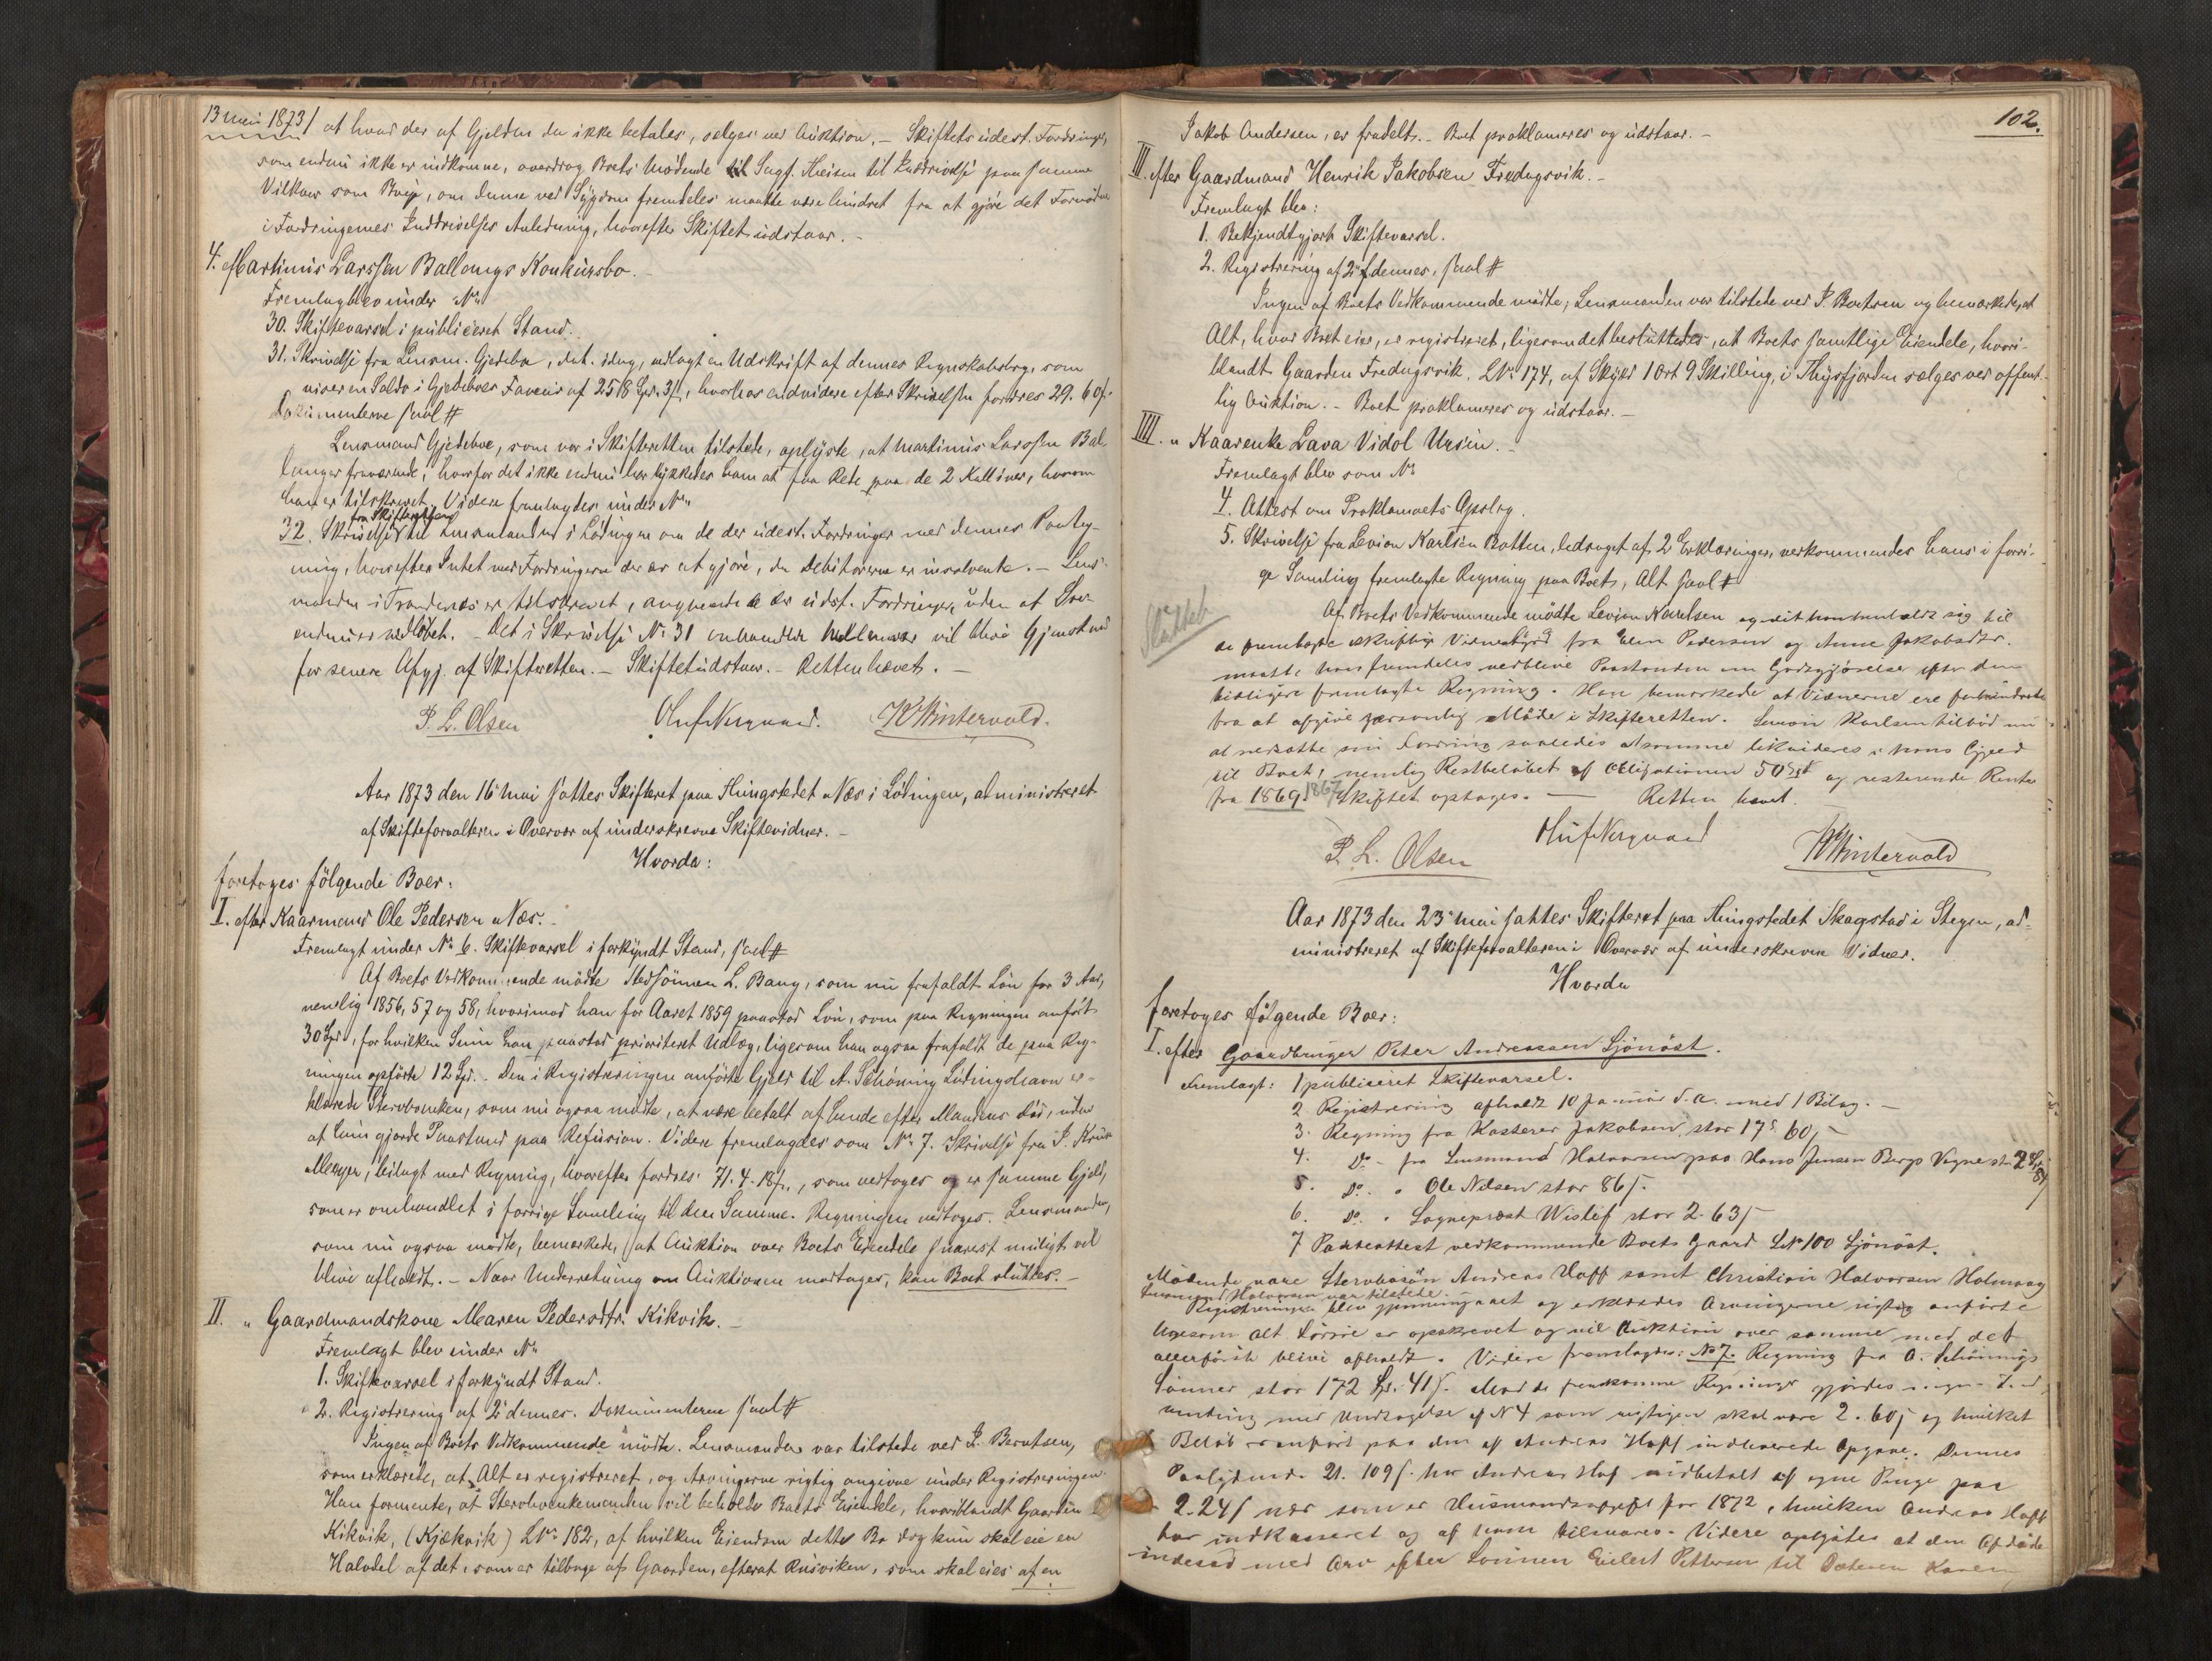 13 mai 1873/ at hvad der af Gjelden da ikke betales, sælges ved Auktion. – Skiftets udest. Fordringer,
som endnu ikke er indkomne, overdrog Boets Mødende til Sagf. Theisen til Inddrivelse paa samme
Vilkaar som Boye, om denne ved Sygdom fremdeles maatte være hindret fra at gjøre det Fornødne
i Fordringernes Inddrivelses Anledning, hvorefter Skiftet udstaar. –
4. Martinus Larssen Ballangs Konkursbo. –
Fremlagt blev under No
30. Skiftevarsel i publiceret Stand.
31. Skrivelse fra Lensm. Gjedeboe, dat. idag, vedlagt en Udskrift af dennes Regnskabsbog, som
viser en Saldo i Gjedeboes Faveur af 258 Spd. 3 ß, hvorhos endvidere efter Skrivelsen fordres 29. 60 ß.
Dokumenterne saal #
Lensmand Gjedeboe, som var i Skifteretten tilstede, oplyste, at Martinus Larssen Bal-
langer fraværende, hvorfor det ikke endnu har lykkedes ham at faa Rede paa de 2 Kalliner, hvorom
han er tilskrevet. Videre fremlagdes under No
32. Skrivelse fra Skifteretten til Lensmanden i Lødingen om de der udest. Fordringer med dennes Paateg-
ning, hvorefter Intet med Fordringerne der er at gjøre, da Debitorerne er insolvente. – Lens-
manden i Trondenes er tilskrevet, angaaende de der udst. Fordringer, uden at Svar
endnu er indløbet. – Det i Skrivelse No 31 omhandlede vil blive Gjenstand
for senere Afgj. af Skifteretten. – Skiftet udstaar. – Retten hævet. –
P. L. Olsen Oluf Nergaard. K Wintervold.
Aar 1873 den 16 Mai sattes Skifteret paa Thingstedet Næs i Lødingen, administreret
af Skifteforvalteren i Overvær af underskrevne Skiftevidner. –
Hvorda:
foretoges følgende Boer:
I. efter Kaarmand Ole Pedersen Næs. –
Fremlagt under No 6. Skiftevarsel i forkyndt Stand, saal #
Af Boets Vedkommende mødte Stedsønnen L. Bang, som nu frafaldt Løn for 3 Aar,
nemlig 1856, 57 og 58, hvorimod han for Aaret 1859 paastod Løn, som paa Regningen anført
30 Spd, for hvilken Sum han paastod prioriteret Udlæg, ligesom han ogsaa frafaldt de paa Reg-
ningen opførte 12 Spd. – Den i Registreringen anførte Gjeld til A. Schøning Lødingshavn er-
klærede Stervboenken, som nu ogsaa mødte, at være betalt af hende efter Mandens Død, uden
at hun gjorde Paastand paa Refusion. Videre fremlagdes som No 7. Skrivelse fra J. Krüs
Meeyer, bilagt med Regning, hvorefter fordres 71. 4. 18 ß., som vedtoges og er samme Gjeld,
som er omhandlet i forrige Samling til den Samme. Regningen vedtoges. Lensmanden,
som nu ogsaa mødte, bemærkede, at Auktion over Boets Eiendele snarest muligt vil
blive afholdt. – Naar Underretning om Auktionen modtages, kan Boet sluttes. –
II. " Gaardmandskone Maren Pedersdtr. Kikvik. –
Fremlagt blev under No
1. Skiftevarsel i forkyndt Stand.
2. Registrering af 2 dennes. Dokumenterne saal #
Ingen af Boets Vedkommende mødte. Lensmanden var tilstede ved J. Berntsen,
som erklærede, at Alt er registreret, og Arvingerne rigtig angivne under Registreringen.
Han formente, at Stervboenkemanden vil beholde Boets Eiendele, hvoriblandt Gaarden
Kikvik, (Kjækvik) LNo 182, af hvilken Eiendom dette Bo dog kun skal eie en
Halvdel af det, som er tilbage af Gaarden, efterat Rusviken, som skal eies af en
102.
Jakob Andersen, er fradelt. – Boet proklameres og udstaar. –
III. efter Gaardmand Henrik Jakobsen Fredagsvik. –
Fremlagt blev:
1. Bekjendtgjort Skiftevarsel.
2. Registrering af 2 dennes, saal #
Ingen af Boets Vedkommende mødte; Lensmanden var tilstede ved J. Berntsen og bemærkede, at
Alt, hvad Boet eier, er registreret, ligesom det besluttedes, at Boets samtlige Eiendele, hvori-
blandt Gaarden Fredagsvik LNo 174, af Skyld 1 Ort 9 Skilling, i Thysfjorden sælges ved offent-
lig Auktion. – Boet proklameres og udstaar. –
IIII. " Kaarenke Lava Vidol Ursin. –
Fremlagt blev som No
4. Attest om Proklamaets Opslag.
5. Skrivelse fra Levion Karlsen Botten, ledsaget af 2 Erklæringer, vedkommendes hans i forri-
ge Samling fremlagte Regning paa Boet, Alt saal #
Sluttet
Af Boets Vedkommende mødte Levion Karlsen og idet han henholdt sig til
de fremlagte skriftlige Vidnesbyrd fra Elen Pedersen og Anne Jakobsdtr.
maatte han fremdeles vedblive Paastanden om Godtgjørelse efter den
tidligere fremlagte Regning. Han bemærkede at Vidnerne ere forhindrede
fra at afgive personlig Møde i Skifteretten. Levion Karlsen tilbød nu
at nedsætte sin Fordring saaledes at samme likvideres i hans Gjeld
til Boet, nemlig Restbeløbet af Obligationen 50 Spd og resterende Renter
fra 1869. 1867 Skiftet optages. – Retten hævet.
P. L. Olsen Oluf Nergaard K Wintervold
Aar 1873 den 23 mai sattes Skifteret paa Thingstedet Skagstad i Stegen, ad-
ministreret af Skifteforvalteren i Overvær af underskrevne Vidner.
Hvorda
foretoges følgende Boer:
I. efter Gaardbruger Peter Andreassen Sjønøst.
Fremlagt: 1 publiceret Skiftevarsel.
2 Registrering afholdt 10 januar d. a. med 1 Bilag. –
3. Regning fra Kasserer Jakobsen, stor 17 s 60 ß –
4. Do – fra Lensmand Halvorsen paa Hans Jensen Bergs Vegne st. 2 Sp. 84 ß
5. Do. " Ole Nilsen stor 86 ß.
6. Do. " Sogneprest Wisløf stor 2. 63 ß
7 Panteattest vedkommende Boets Gaard LNo 100 Sjønøst.
Mødende vare Stervbosøn Andreas Hoff samt Christian Halvorsen Holmaag
Lensmand Halvorsen var tilstede.
Registreringen blev gjennemgaaet og erklærdes Arvingerne rigtig anførte
ligesom alt Løsøre er opskrevet og vil Auktion over samme med det
allerførste blive afholdt. Videre fremlagdes: No 7. Regning fra A. Schønnings
Sønner stor 172 Sp. 41 ß. Mod de fremkomne Regninger gjordes ingen Ind-
vending med Undtagelse af N 4 som rigtigen skal være 2. 60 ß og hvilket
Beløb er anført paa den af Andreas Hoff indleverede Opgave. Dennes
Paalydende 21. 109 ß. har Andreas Hof udbetalt af egne Penge paa
2. 24 ß nær som er Husmandsafgift for 1872, hvilken Andreas Hoff
har indkasseret og af ham tilsvares. Videre oplystes at den Afdøde
indesad med Arv efter Sønnen Eilert Pettersen til Datteren Karen